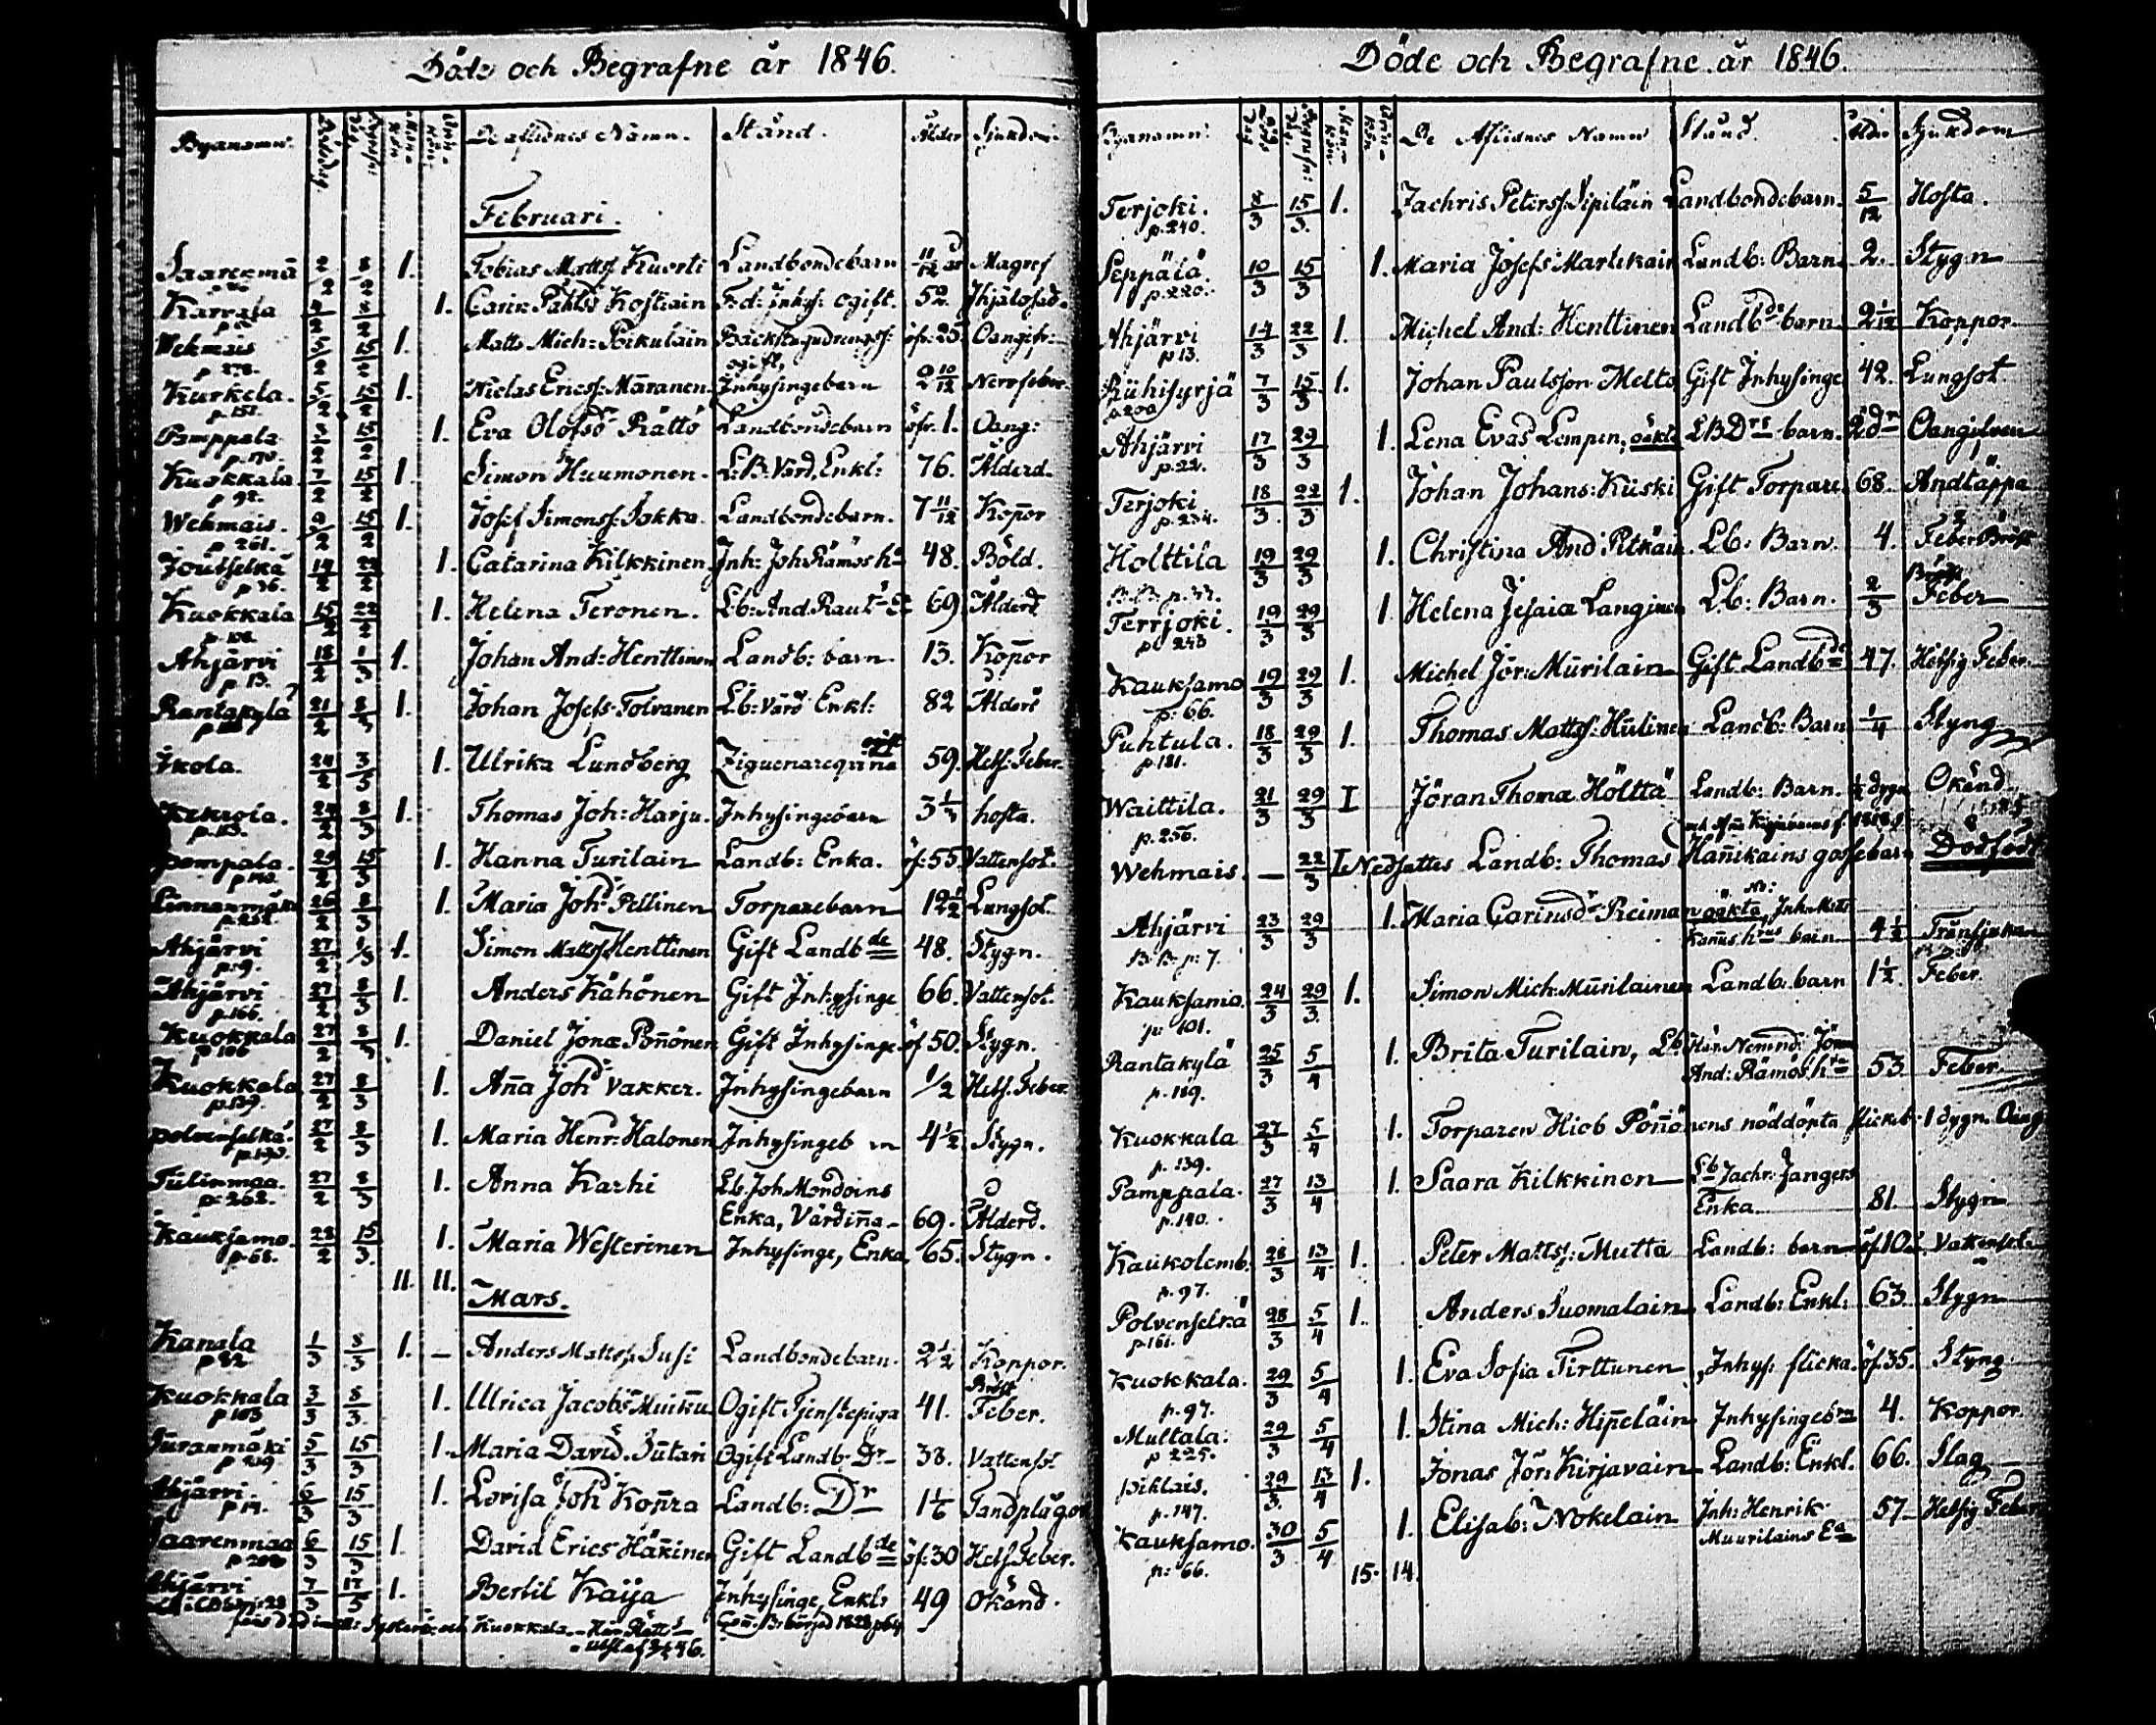 Döde och Begrafne år 1846.
Byanamn. De aflidnes Namn. Stånd. Ålder Sjukdom
Februari.
Saarenmä 2/2 8/2 1. Tobias Mattss Kuorti Landbondebarn 11/12 år Magref
Karrala 4/2 8/2 1. Carin Påhlsd Kostiain F.d. Inhys: ogift. 52. Ihjälosad.
Wehmais 5/2 15/2 1. Matts Mich: Poikulain Backstugudrengss: öfr: 25. Oangifv:
p 278. ogift,
Kurkela. 5/2 15/2 1. Niclas Ericss. Märanen. Inhysingebarn 2 10/12 Nervfeber.
p. 151.
Pamppala 3/2 15/2 1. Eva Olofsdr Rättö Landbondebarn öfr. 1. Oang:
p. 170.
Kuokkala. 7/2 15/2 1. Simon Huumonen. L:B. Värd, Enkl: 76. Ålderd.
p 92.
Wehmais. 9/2 15/2 1. Josef Simonss. Sokka. Landbondebarn. 7 11/12 Kopor
p 261.
Joutselkä 14/2 22/2 1. Catarina Kilkkinen. Inh: Joh. Rämös h- 48. Böld.
p 36.
Kuokkala 15/2 22/2 1. Helena Teronen. Lb: And. Raut 69 Ålderd
Ahjärvi 18/2 1/3 1. Johan And: Henttinen Landb: barn. 13. Kopor
p 13.
Rantakylä 21/2 8/3 1. Johan Josefs. Tolvanen Lb: Värd Enkl: 82 Ålderd
Ikola. 24/2 3/3 1. Ulrika Lundberg Ziguenareqvina gift 59. Hets: Feber.
Kekrola. 24/2 8/3 1. Thomas Joh: Harju. Inhysingebarn 3 1/3 hosta.
p. 123.
pompala. 25/2 15/3 1. Hanna Turilain Landb: Enka. öf: 55 Vattensot.
Linnanmäki 26/2 8/3 1. Maria Johd Pellinen Torparebarn 12 1/2 Lungsot.
p. 252.
Ahjärvi 27/2 1/3 1. Simon Mattss Henttinen Gift Landbde 48. Stygn.
p: 9.
Ahjärvi 27/2 8/3 1. Anders Kähönen Gift Inhysinge 66. Vattensot.
p. 166.
Kuokkala 27/2 8/3 1. Daniel Jonæ Pönönen Gift Inhysinge öf 50. Stygn.
p 106
Kuokkala 27/2 8/3 1. Ana Johd Vakker. Inhysingebarn 1/2 Hets. Feber.
p. 139.
polvenselkä. 27/2 8/3 1. Maria Henr: Halonen Inhysingeb rn 4 1/2 Stygn.
Tulinmaa. 27/2 8/3 1. Anna Karhi Lb. Joh. Mondoins
p: 262. Enka, Värdina - 69. Ålderd.
Kauksamo. 28/2 15/3. 1. Maria Westerinen Inhysinge, Enka 65. Stygn.
p. 68.
11. 11. Mars.
Kanala 1/3 8/3 1. - Anders Mattss. Susi Landbondebarn. 2 1/2 Koppor.
p 82
Kuokkala 3/3 8/3. 1. Ulrica Jacobsdr Muiku Ogift Tjenstepiga 41. Bröst Feber.
p 103
Suranmäki 5/3 15/3 1. Maria David. Sutari Ogift Landb. Dr 38. Vattensot
p 219
Ahjärvi. 6/3 15/3 1. Lovisa Johd Konra Landb: Dr 1 1/6 Tandplågor
p 14.
Saarenmaa 6/3 15/3 1. David Erics Häkinen Gift Landbde öf: 30 Hets. Feber.
p. 208
Ahjärvi 7/3 17/5 1. Bertil Kaija Inhysinge, Enkl: 49 Okänd.
Döde och Begrafne år 1846.
Byanamn. De Aflidnes Namn Stånd. Ålder Sjukdom
Terjoki. 8/3 15/3. 1. Zachris Peterss: Sipiläin Landbondebarn. 5/12 Hosta.
p. 240.
Seppälä 10/3 15/3 1. Maria Josefs: Martikain Landb: Barn 2. Stygn
p. 220.
Ahjärvi 14/3 22/3 1. Michel And: Henttinen Landbd: barn 2 1/12 Koppor.
p 13.
Riihisyrjä 7/3 15/3 1. Johan Paulsson Melto Gift Inhysinge 42. Lungsot
p. 200
Ahjärvi 17/3 29/3 1. Lena Evasd Lempin, oäkta LBDrs barn. 2 dr Oangifven
p. 22.
Terjoki 18/3. 22/3 1. Johan Johans: Kiiski Gift Torpare 68. Andtäppa
p. 234.
Holttila 19/3 29/3 1. Christina Andd Pitkäin. Lb: Barn. 4. Feber Bröst
B.B: p. 33.
Terrjoki. 19/3 29/3 1. Helena Jesaiæ Langinen Lb: Barn. 2/3 Bröst Feber
p: 243
Kauksamo 19/3 29/3 1. Michel Jör: Murilain Gift Landbde 47. Hetsig Feber.
p: 66.
Puhtula. 18/3 29/3 1. Thomas Mattss: Hulinen Landb: Barn 1/4 Styng
p. 181.
Waittila. 21/3 29/3 I Jöran Thomæ Hölttä Landb: Barn. 1/2 dygn Okänd
p. 256.
Wehmais. - 22/3 I Nedsattes Landb: Thomas Hanikains gossebarn Dödfödt
Ahjärvi 23/3 29/3 1. Maria Carinsdr Reiman oäkta, Inh: Matts
B:B: p: 7. Kanus hrus barn 4 1/2 Trånsjukan
Kauksamo. 24/3 29/3. 1. Simon Mich: Murilainen Landb: barn 1 1/2. Feber.
p: 101.
Rantakylä 25/3 5/4 1. Brita Turilain, Lb. Här. Nemnd: Jöran
p. 189. And: Rämös h 53. Feber.
Kuokkala 27/3 5/4 1. Torparen Hiob Pönönens nöddöpta flickeb. 1 dygn. Oang
p. 139.
Pamppala. 27/3 13/4 1. Saara Kilkkinen Lb Zachr: Jangers
p. 140. Enka. 81. Stygn
Kaukolemb. 28/3 13/4 1. Peter Mattss: Mutta Landb: barn öf. 10. Vattensot.
p. 97.
Polvenselkä 28/3 5/4 1. Anders Suomalain Landb: Enkl: 63. Stygn
p. 161.
Kuokkala. 29/3 5/4 1. Eva Sofia Tirttunen Inhys: flicka. öf. 35. Styng
p. 97.
Multala. 29/3 5/4 1. Stina Mich: Hipeläin Inhysingebrn 4. Koppor.
p 225.
Piklais. 29/3. 13/4 1. Jonas Jör: Kirjavain Landb: Enkl. 66. Slag
p. 147.
Kauksamo. 30/3 5/4 1. Elisab: Nokelain Inh: Henrik 57 Hetsig Feber
p: 66. Muurilains Ea
15. 14.